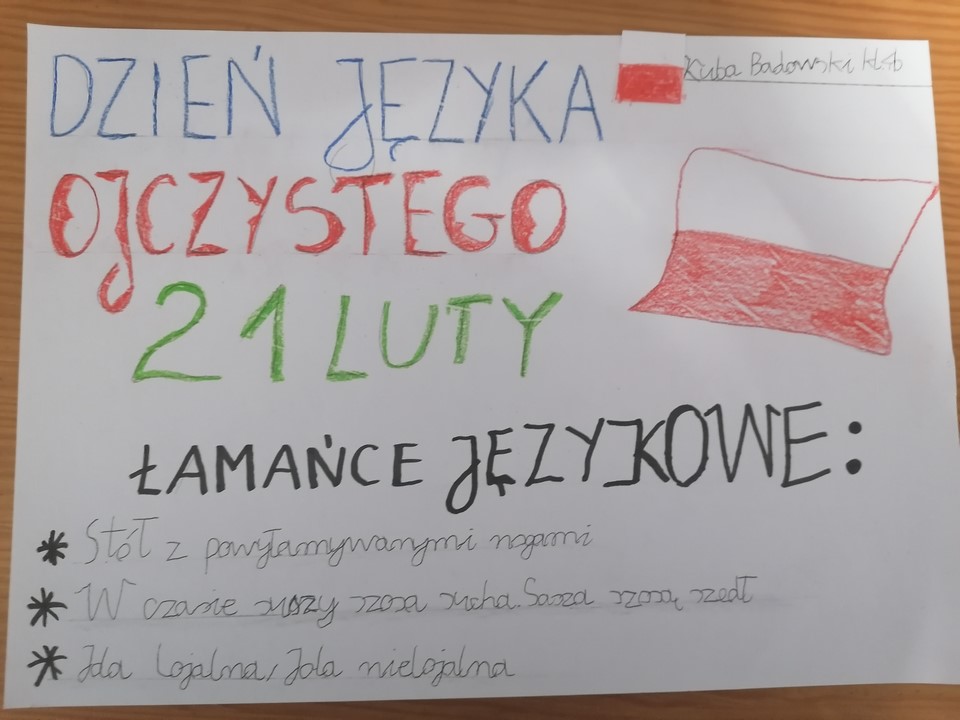 DZIEŃ JĘZYKA
Kuba Badowski kl 4b
OJCZYSTEGO
21 LUTY
ŁAMAŃCE JĘZYKOWE:
* Stół z powyłamywanymi nogami
* W czasie suszy szosa sucha. Sasza szosą szedł
* Jola lojalna, Jola nielojalna